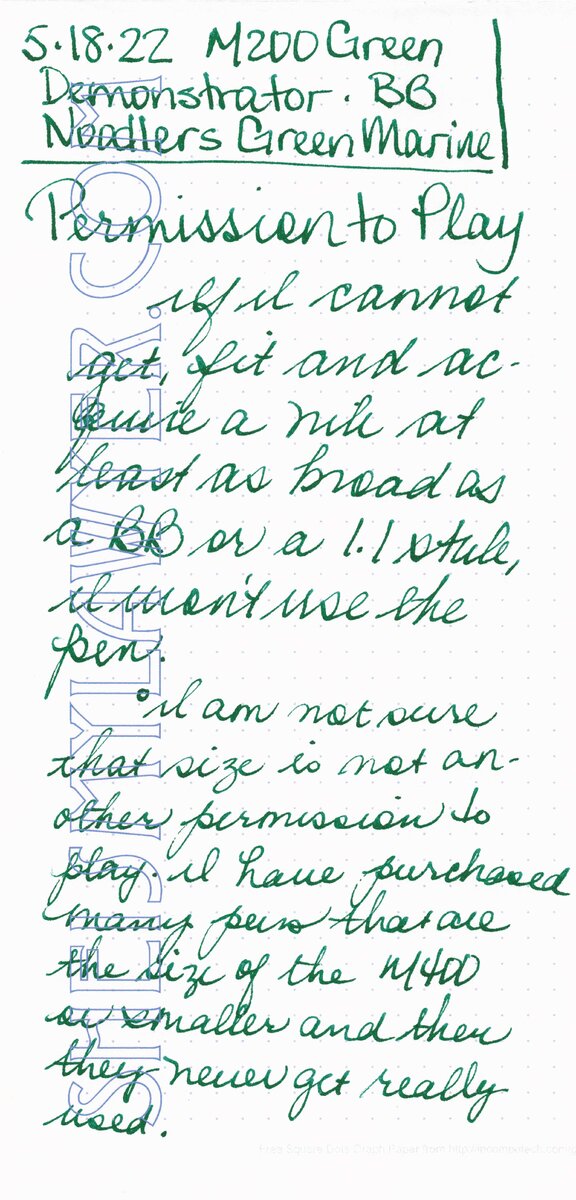 5.18.22 M200 Green
Demonstrator. BB
Noodlers Green Marine
Permission to Play
If I cannot
get, fit and ac-
quire a nib at
least as broad as
a BB or a 1.1 stub,
I won't use the
pen.
I am not sure
that size is not an-
other permission to
play. I have purchased
many pens that are
the size of the M400
or smaller and then
they never get really
used.
SHEISMYLAWYER.COM
Free Square Dots Graph Paper from http://incompetech.com/